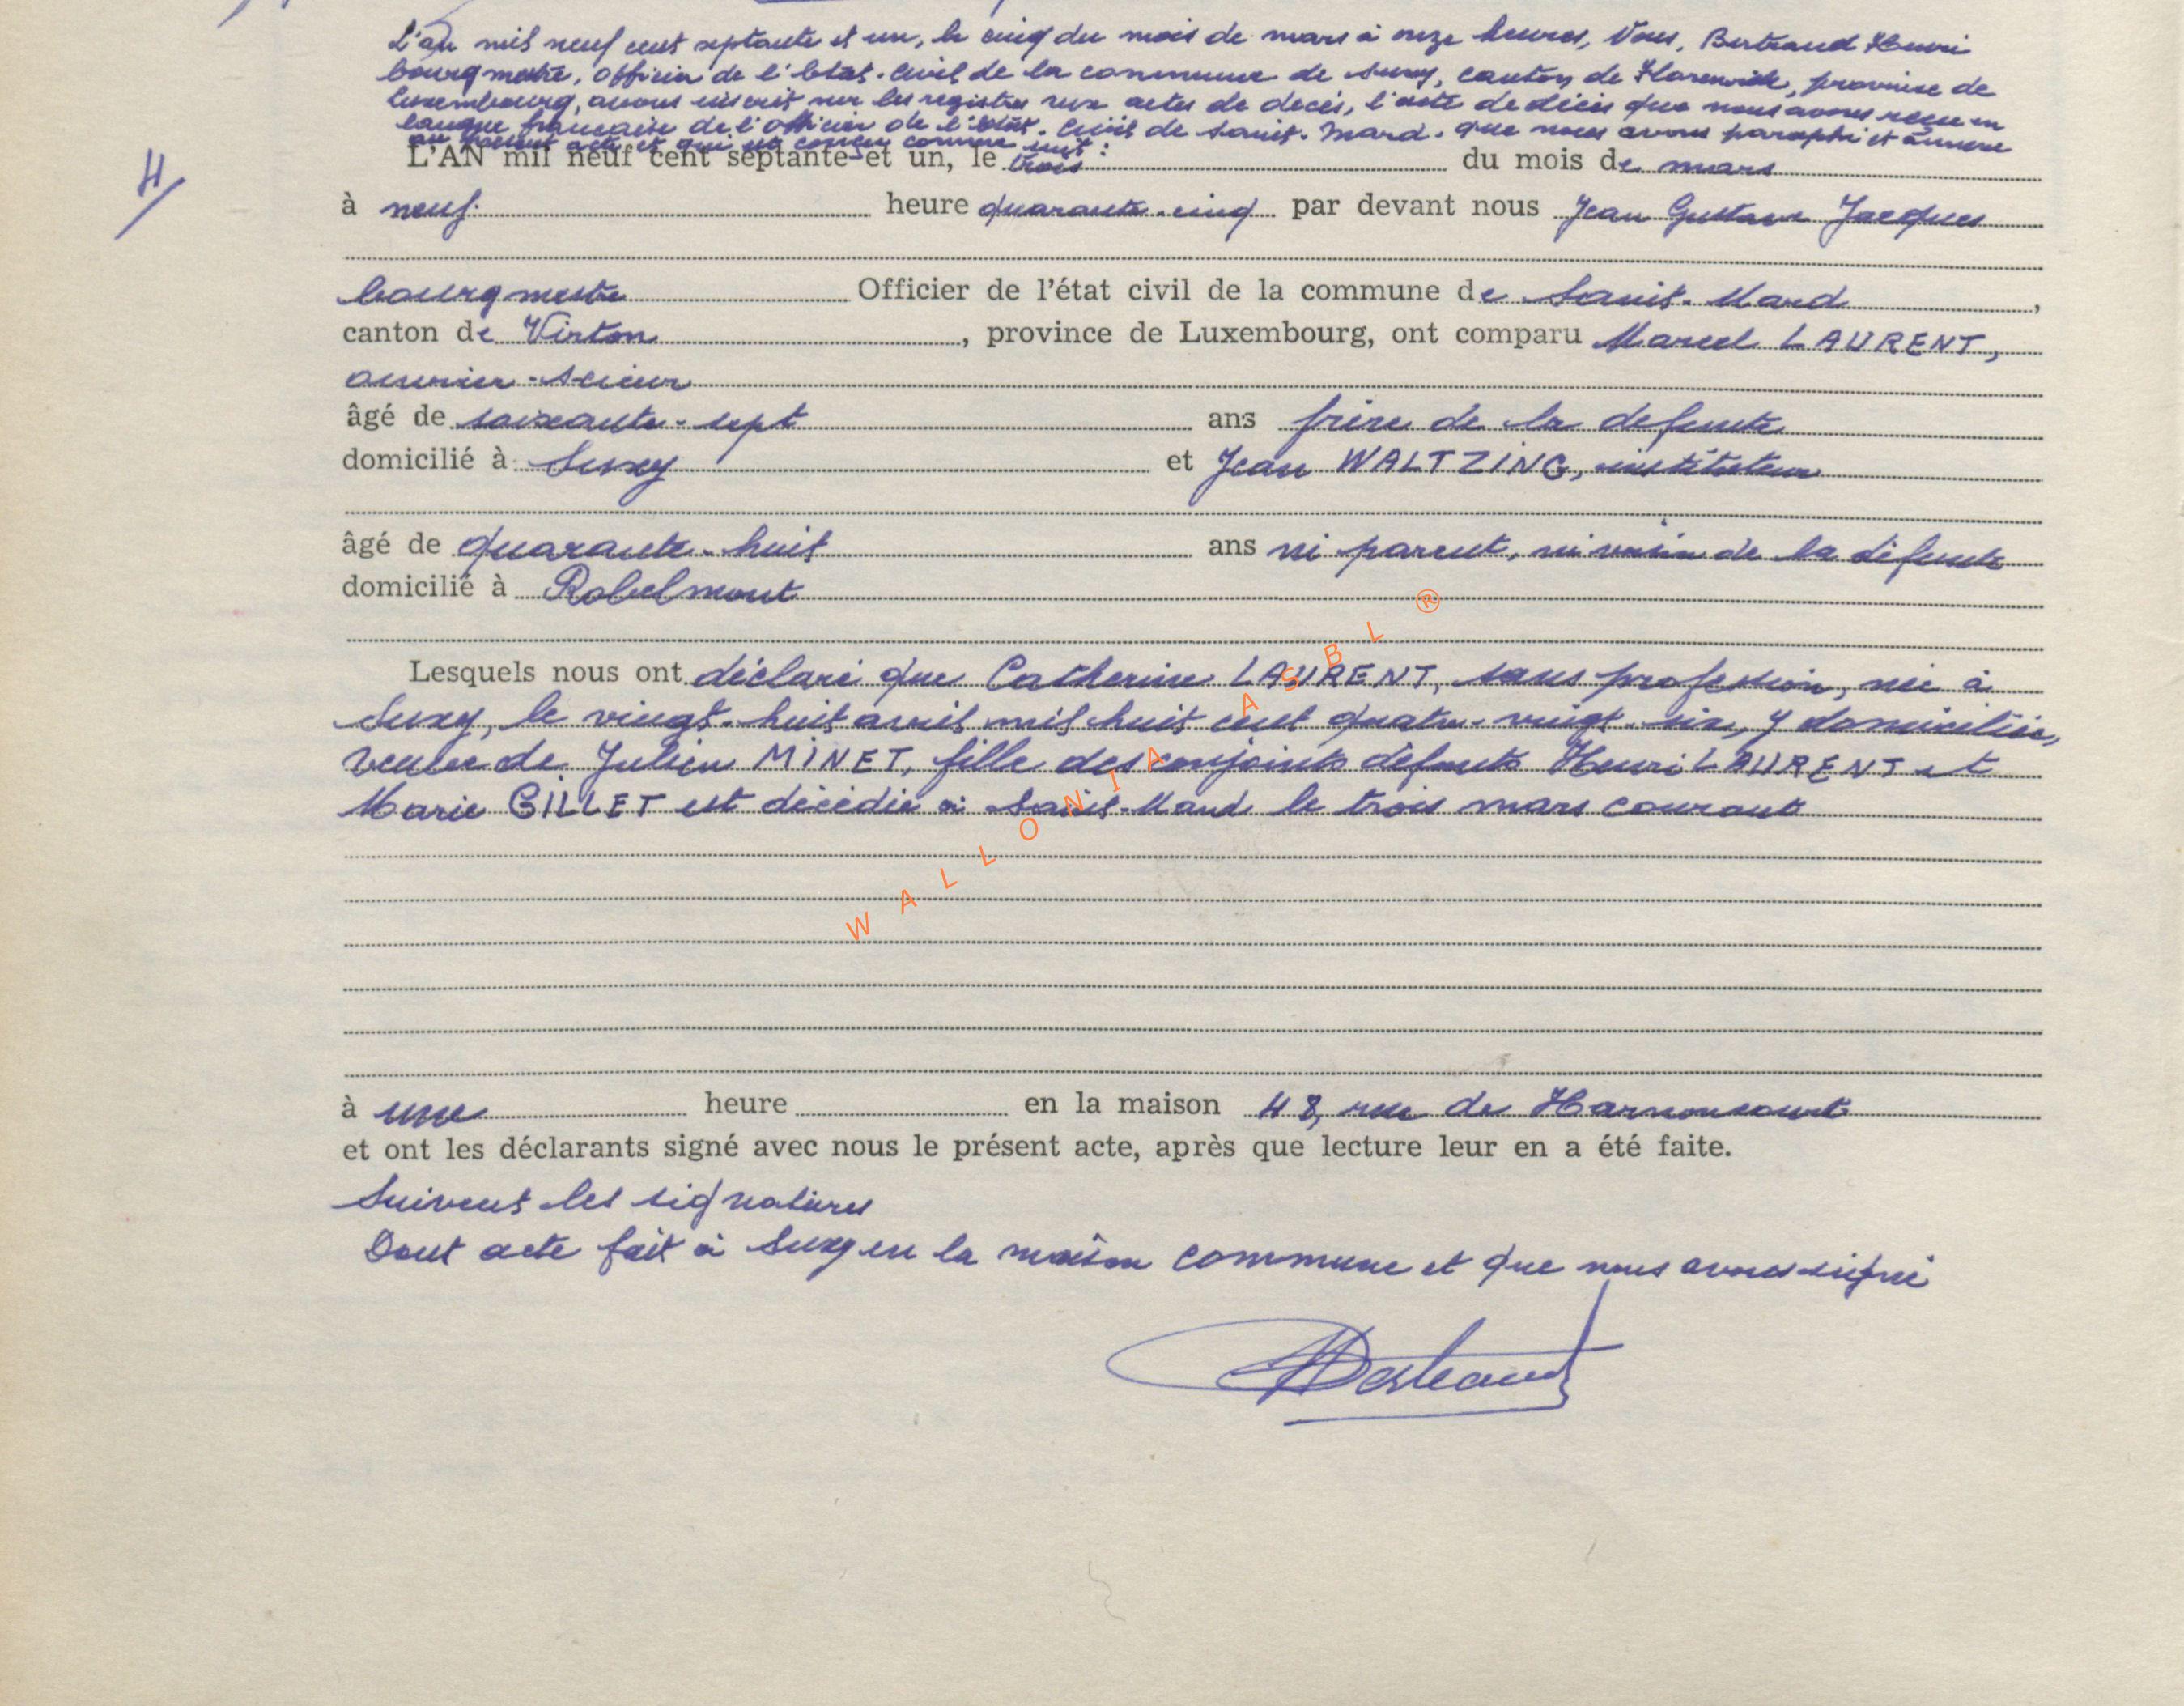 L'an mil neuf cent septante et un, le cinq du mois de mars à onze heures, Nous, Bertrand Henri
bourgmestre, officier de l'état-civil de la commune de Suxy, canton de Florenville, province de
Luxembourg, avons inscrit sur les registres aux actes de décès, l'acte de décès que nous avons reçu en
langue française de l'officier de l'état-civil de Saint-Mard. que nous avons paraphé et annexé
au présent acte et qui est conçu comme suit :
4/
L'AN mil neuf cent septante et un, le trois du mois de mars
à neuf heure quarante-cinq par devant nous Jean Gustave Jacques
bourgmestre Officier de l'état civil de la commune de Saint-Mard,
canton de Virton, province de Luxembourg, ont comparu Marcel LAURENT,
ouvrier-scieur
âgé de soixante-sept ans frère de la défunte
domicilié à Suxy et Jean WALTZING, instituteur
âgé de quarante-huit ans ni parent, ni voisin de la défunte
domicilié à Robelmont
Lesquels nous ont déclaré que Catherine LAURENT, sans profession, née à
Suxy, le vingt-huit avril mil huit cent quatre-vingt-six, y domiciliée,
veuve de Julien MINET, fille des conjoints défunts Henri LAURENT et
Marie GILLET est décédée à Saint-Mard le trois mars courant
WALLONIA ASBL ®
à une heure en la maison 48, rue de Harnoncourt
et ont les déclarants signé avec nous le présent acte, après que lecture leur en a été faite.
Suivent les signatures
Dont acte fait à Suxy en la maison commune et que nous avons signé
HBertrand